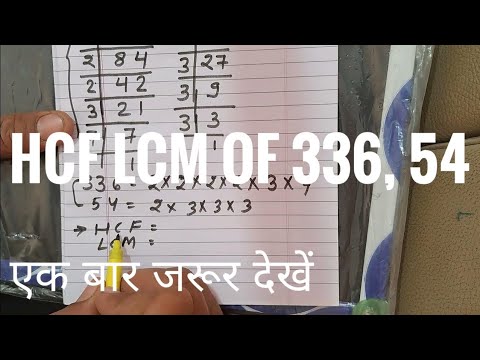 2 | 84 3 | 27
2 | 42 3 | 9
3 | 21 3 | 3
7 1
HCF LCM OF 336, 54
336 = 2×2×2×2×3×7
54 = 2×3×3×3
→ HCF =
LCM =
एक बार जरूर देखें